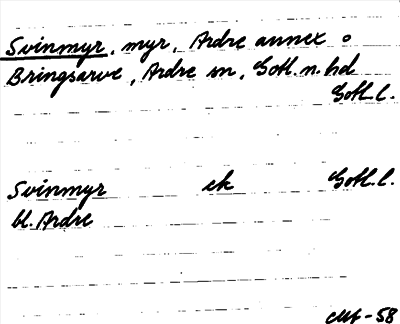 Svinmyr, myr, Ardre annex o
Bringsarve, Ardre sn, Gotl. n. hd
Gotl. l.
Svinmyr ek Gotl. l.
bl. Ardre
-58